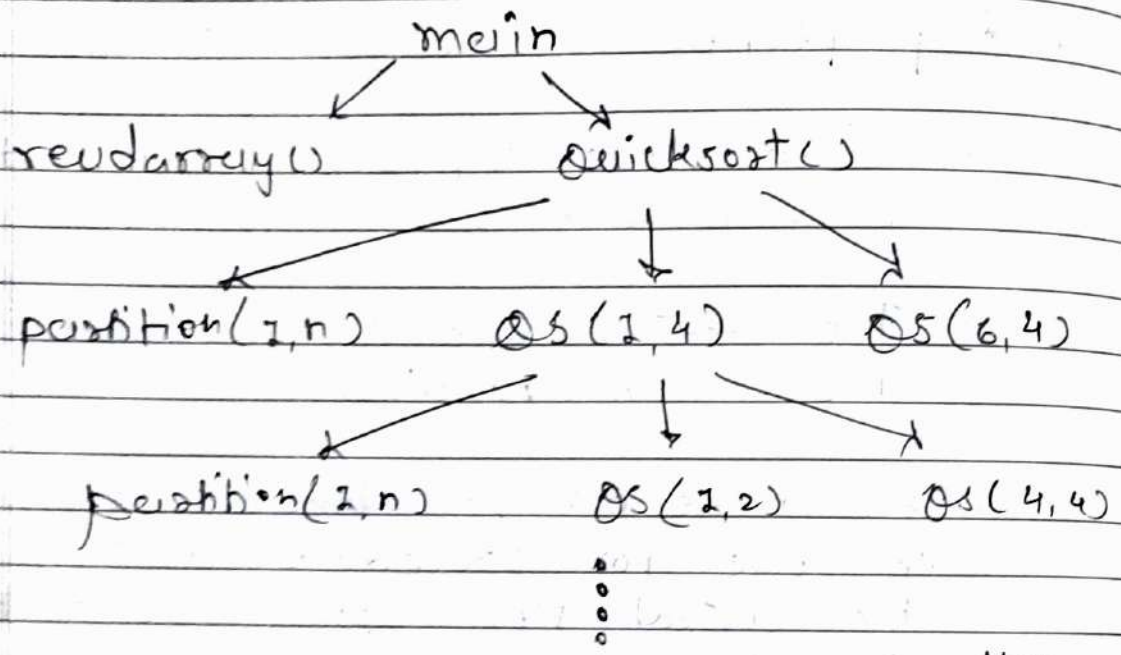 main
readarray() Quicksort()
partition(1,n) QS(1,4) QS(6,4)
partition(1,n) QS(1,2) QS(4,4)